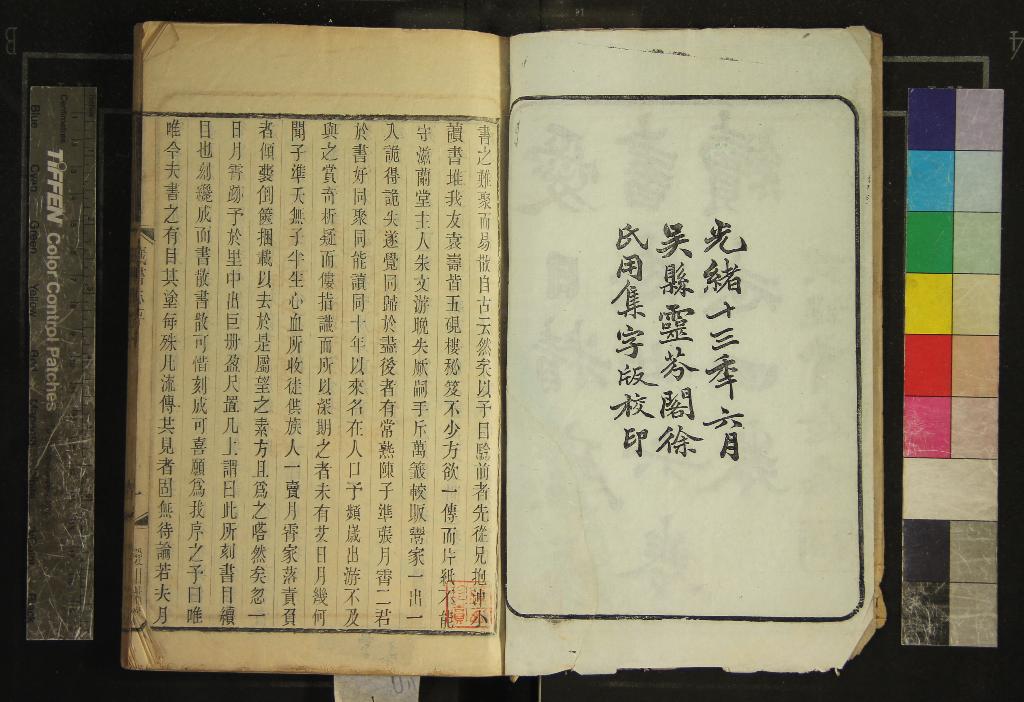 光緒十三秊六月
吳縣靈芬閣徐
氏用集字版校印
書之難聚而易散自古云然矣以予目驗前者先從兄抱沖小
讀書堆我友袁壽皆五硯樓秘笈不少方欲一傳而片紙不能
守滋蘭堂主人朱文游晚失厥嗣手斥萬籤較販鬻家一出一
入詭得詭失遂覺同歸於盡後者有常熟陳子準張月霄二君
於書好同聚同能讀同十年以來名在人口予頻歲出游不及
與之賞奇析疑而僂指識而所以深期之者未有艾日月幾何
聞子準夭無子半生心血所收徒供族人一賣月霄家落責負
者傾囊倒篋捆載以去於是屬望之素方且爲之嗒然矣忽一
日月霄跡予於里中出巨冊盈尺置几上謂曰此所刻書目續
目也刻纔成而書散書散可惜刻成可喜願爲我序之予曰唯
唯今夫書之有目其塗每殊凡流傳共見者固無待論若夫月
TIFFEN Color Control Patches
Blue
Cyan
Green
Yellow
Red